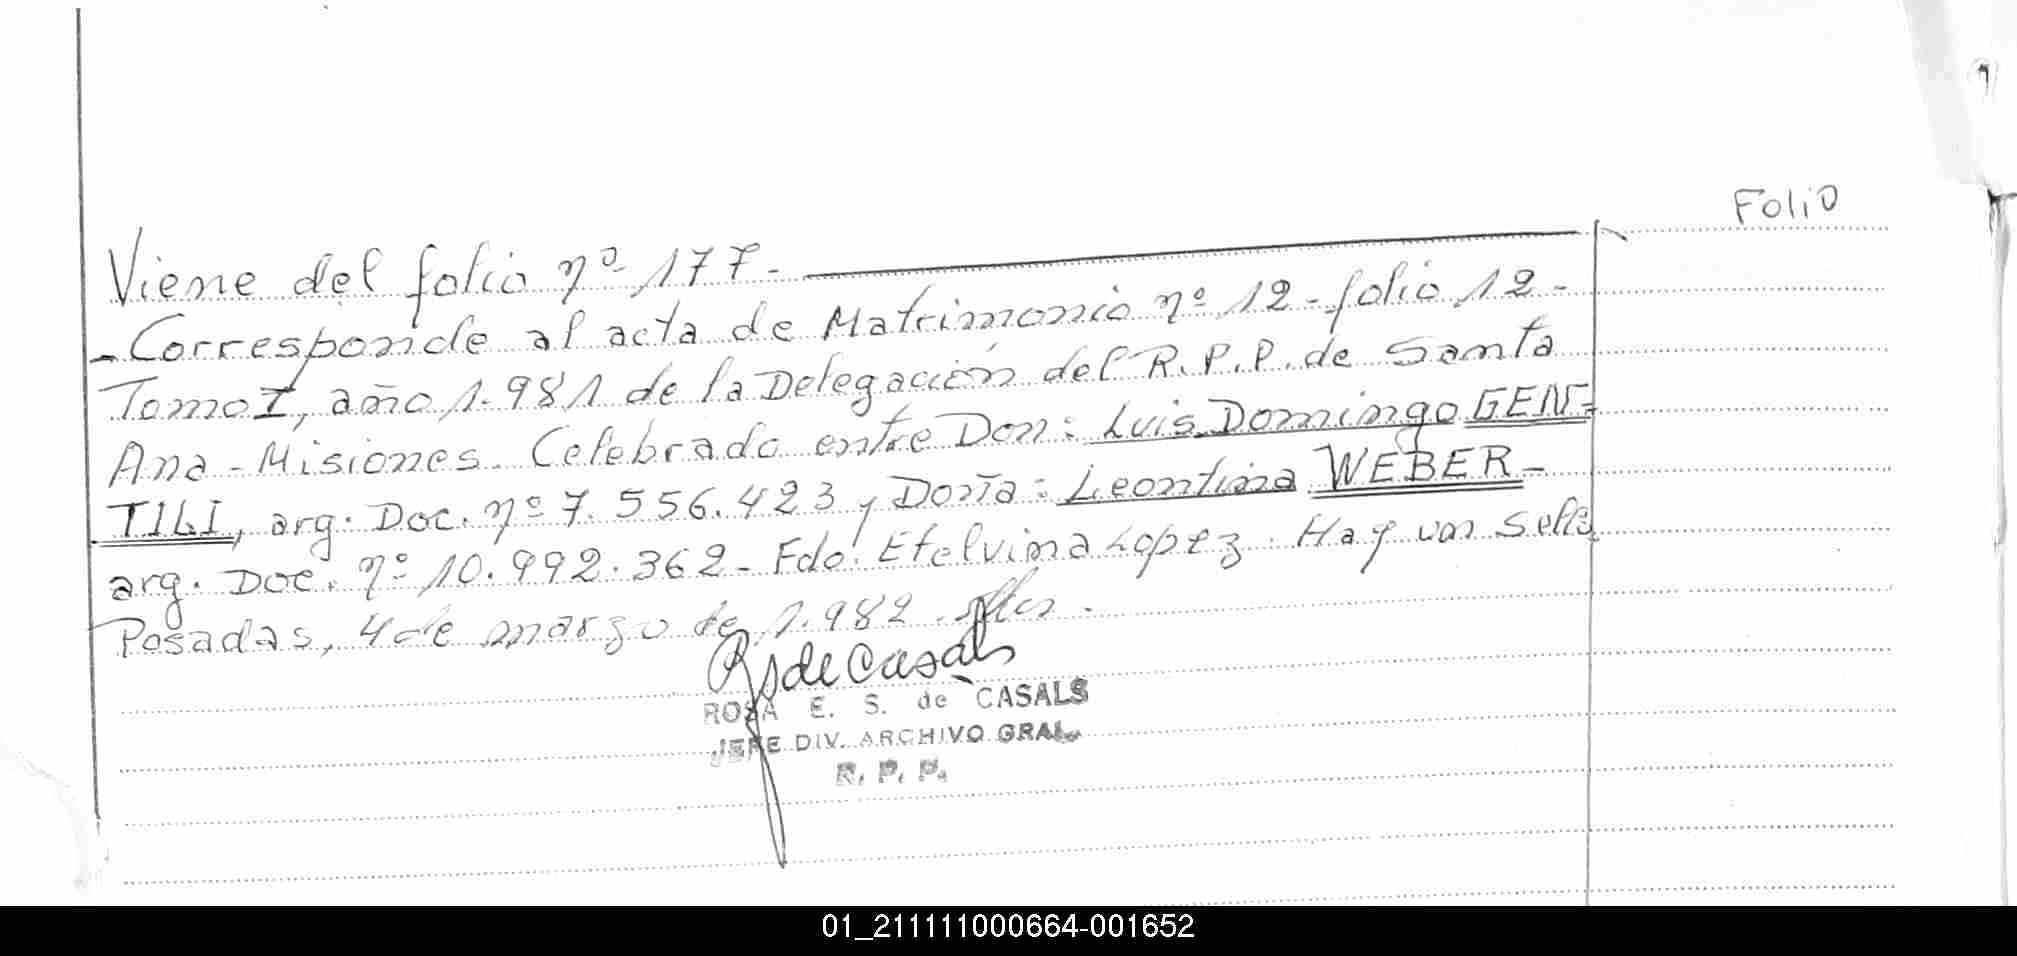 Folio
Viene del folio nº 177.
- Corresponde al acta de Matrimonio nº 12 - folio 12 -
Tomo I, año 1.981 de la Delegación del R.P.P. de Santa
Ana - Misiones. Celebrado entre Don: Luis Domingo GEN-
TILI, arg. Doc. nº 7.556.423 y Doña: Leontina WEBER -
arg. Doc. nº 10.992.362 - Fdo. Etelvina Lopez. Hay un Sello
Posadas, 4 de marzo de 1.982.
de Casals
ROSA E. S. de CASALS
JEFE DIV. ARCHIVO GRAL.
R. P. P.
01_211111000664-001652